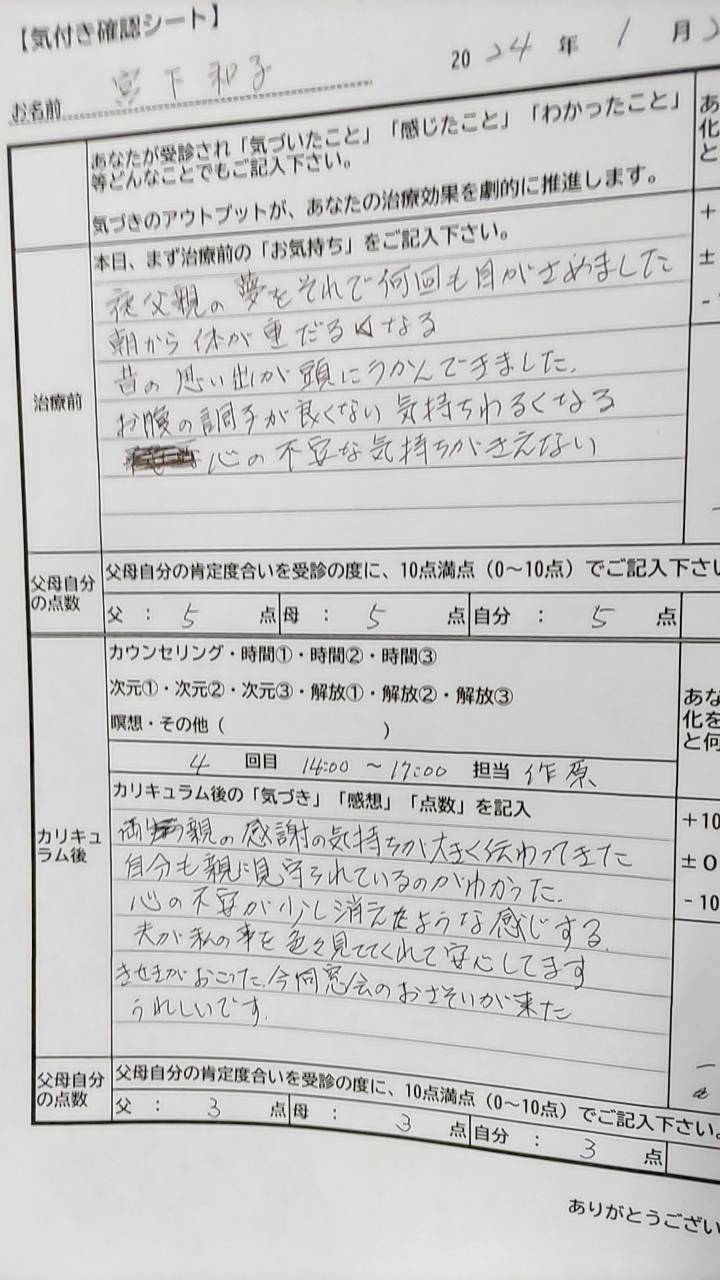 【気付き確認シート】
2024年 1月
お名前 宮下 和子
あなたが受診され「気づいたこと」「感じたこと」「わかったこと」
等どんなことでもご記入下さい。
気づきのアウトプットが、あなたの治療効果を劇的に推進します。
あ
化
と
+
±
-
治療前
本日、まず治療前の「お気持ち」をご記入下さい。
夜父親の夢をそれで何回も目がさめました
朝から体が重だるくなる
昔の思い出が頭にうかんできました.
お腹の調子が良くない気持ちわるくなる
心の不安な気持ちがきえない
父母自分の点数
父母自分の肯定度合いを受診の度に、10点満点（0～10点）でご記入下さい
父 ： 5 点 母 ： 5 点 自分 ： 5 点
カリキュラム後
カウンセリング・時間①・時間②・時間③
次元①・次元②・次元③・解放①・解放②・解放③
瞑想・その他（ ）
4 回目 14:00 ～17:00 担当 作原
カリキュラム後の「気づき」「感想」「点数」を記入
両親の感謝の気持ちが大きく伝わってきた
自分も親に見守られているのがわかった.
心の不安が少し消えたような感じする.
夫が私の事を色々見ててくれて安心してます
きせきがおこった.今同窓会のおさそいが来た
うれしいです.
あな
化を
と何
+10
±0
-10
父母自分の点数
父母自分の肯定度合いを受診の度に、10点満点（0～10点）でご記入下さい。
父 ： 3 点 母 ： 3 点 自分 ： 3 点
ありがとうござい